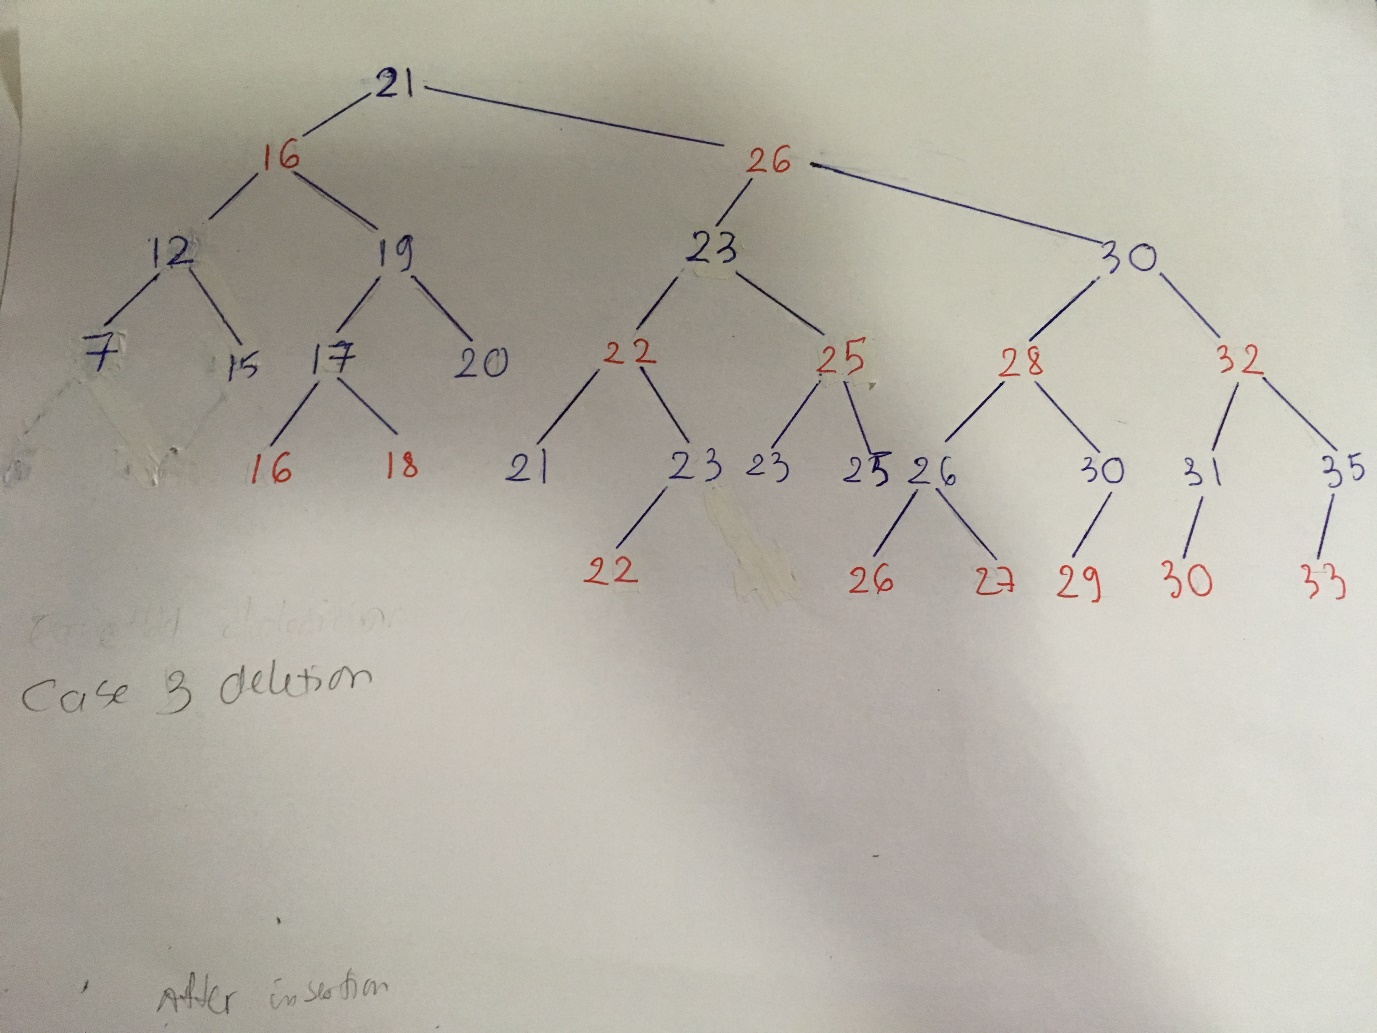 21
16 26
12 19 23 30
7 15 17 20 22 25 28 32
16 18 21 23 23 25 26 30 31 35
22 26 27 29 30 33
Case 3 deletion
After insertion